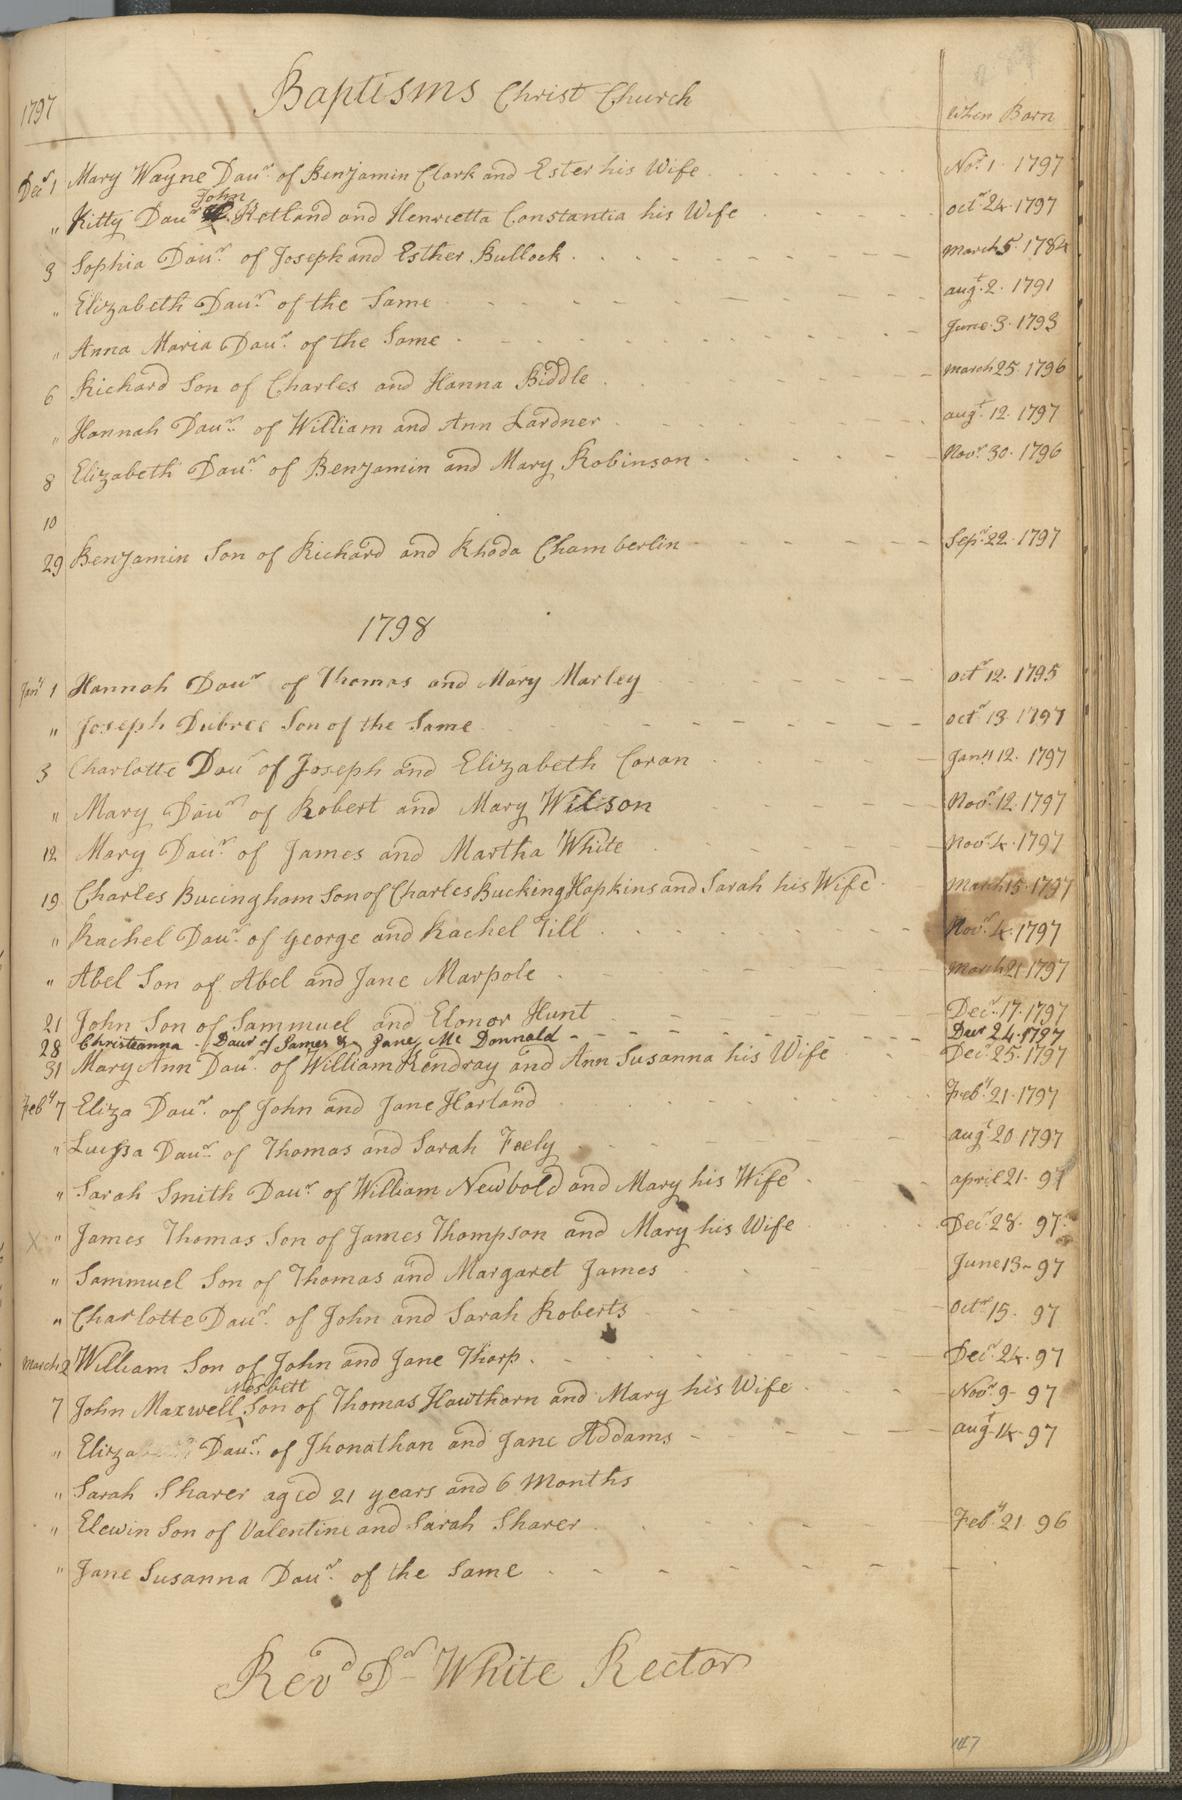 1797 Baptisms Christ Church When Born
Decr 1 Mary Wayne Daur of Benjamin Clark and Ester his Wife Nor 1 1797
John
" Kitty Daur Ketland and Henrietta Constantia his Wife octr 24 1797
3 Sophia Daur of Joseph and Esther Bullock March 5 1784
" Elizabeth Daur of the Same augt 2 1791
" Anna Maria Daur of the Same June 3 1793
6 Richard Son of Charles and Hanna Biddle March 25 1796
" Hannah Daur of William and Ann Lardner augt 12 1797
8 Elizabeth Daur of Benjamin and Mary Robinson Novr 30 1796
10
29 Benjamin Son of Richard and Rhoda Chamberlin Sepr 22 1797
1798
Jany 1 Hannah Daur of Thomas and Mary Marley octr 12 1795
" Joseph Dubree Son of the Same octr 13 1797
3 Charlotte Daur of Joseph and Elizabeth Coran Jany 12 1797
" Mary Daur of Robert and Mary Wilson Novr 12 1797
12 Mary Daur of James and Martha White Novr 4 1797
19 Charles Bucingham Son of Charles Bucking Hopkins and Sarah his Wife March 15 1797
" Rachel Daur of George and Rachel Till Novr 4 1797
" Abel Son of Abel and Jane Marpole March 21 1797
21 John Son of Sammuel and Elonor Hunt Decr 17 1797
28 Christeanna Daur of James & Jane Mc Donnald Decr 24 1797
31 Mary Ann Daur of William Kendray and Ann Susanna his Wife Decr 25 1797
Feby 7 Eliza Daur of John and Jane Harland Feby 21 1797
" Luissa Daur of Thomas and Sarah Feely augt 20 1797
" Sarah Smith Daur of William Newbold and Mary his Wife april 21 97
X " James Thomas Son of James Thompson and Mary his Wife Decr 28 97
" Sammuel Son of Thomas and Margaret James June 13 97
" Charlotte Daur of John and Sarah Roberts octr 15 97
March 2 William Son of John and Jane Thorp Decr 24 97
Nesbett
7 John Maxwell Son of Thomas Hawthorn and Mary his Wife Novr 9 97
" Eliza Daur of Jhonathan and Jane Addams augt 14 97
" Sarah Sharer aged 21 years and 6 Months
" Elewin Son of Valentine and Sarah Sharer Feby 21 96
" Jane Susanna Daur of the Same
Revd Dr White Rector
147